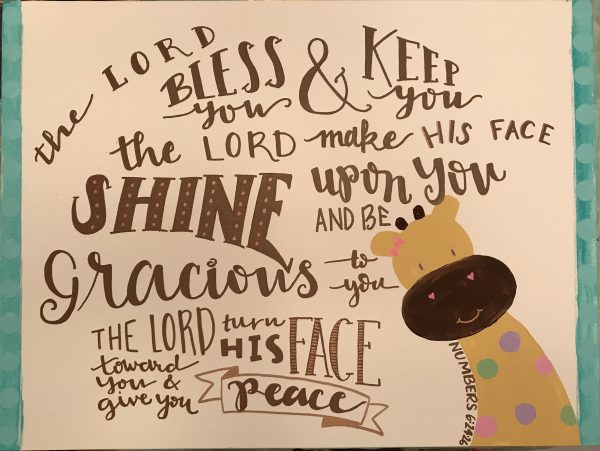 the LORD
BLESS & KEEP
you you
the LORD make HIS FACE
SHINE upon you
AND BE
Gracious to
you
THE LORD turn FACE
HIS
toward
you &
give you peace
NUMBERS 6:24-26